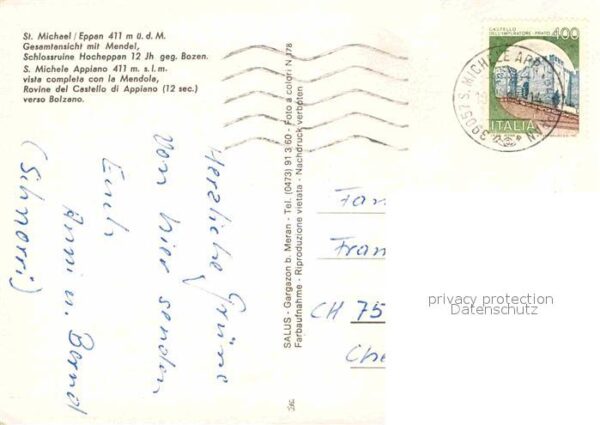 St. Michael / Eppan 411 m ü. d. M.
Gesamtansicht mit Mendel,
Schlossruine Hocheppan 12 Jh geg. Bozen.
S. Michele Appiano 411 m. s. l. m.
vista completa con la Mendola,
Rovine del Castello di Appiano (12 sec.)
verso Bolzano.
Herzliche Grüsse
von hier senden
Euch
u. Bernd
SALUS - Gargazon b. Meran - Tel. (0473) 91 3 60 - Foto a colori: N. 178
Farbaufnahme - Riproduzione vietata - Nachdruck verboten
CASTELLO
DELL'IMPERATORE - PRATO
400
ITALIA
39057 S. MICHELE APP.
Fam
Fran
CH 75
Che
privacy protection
Datenschutz